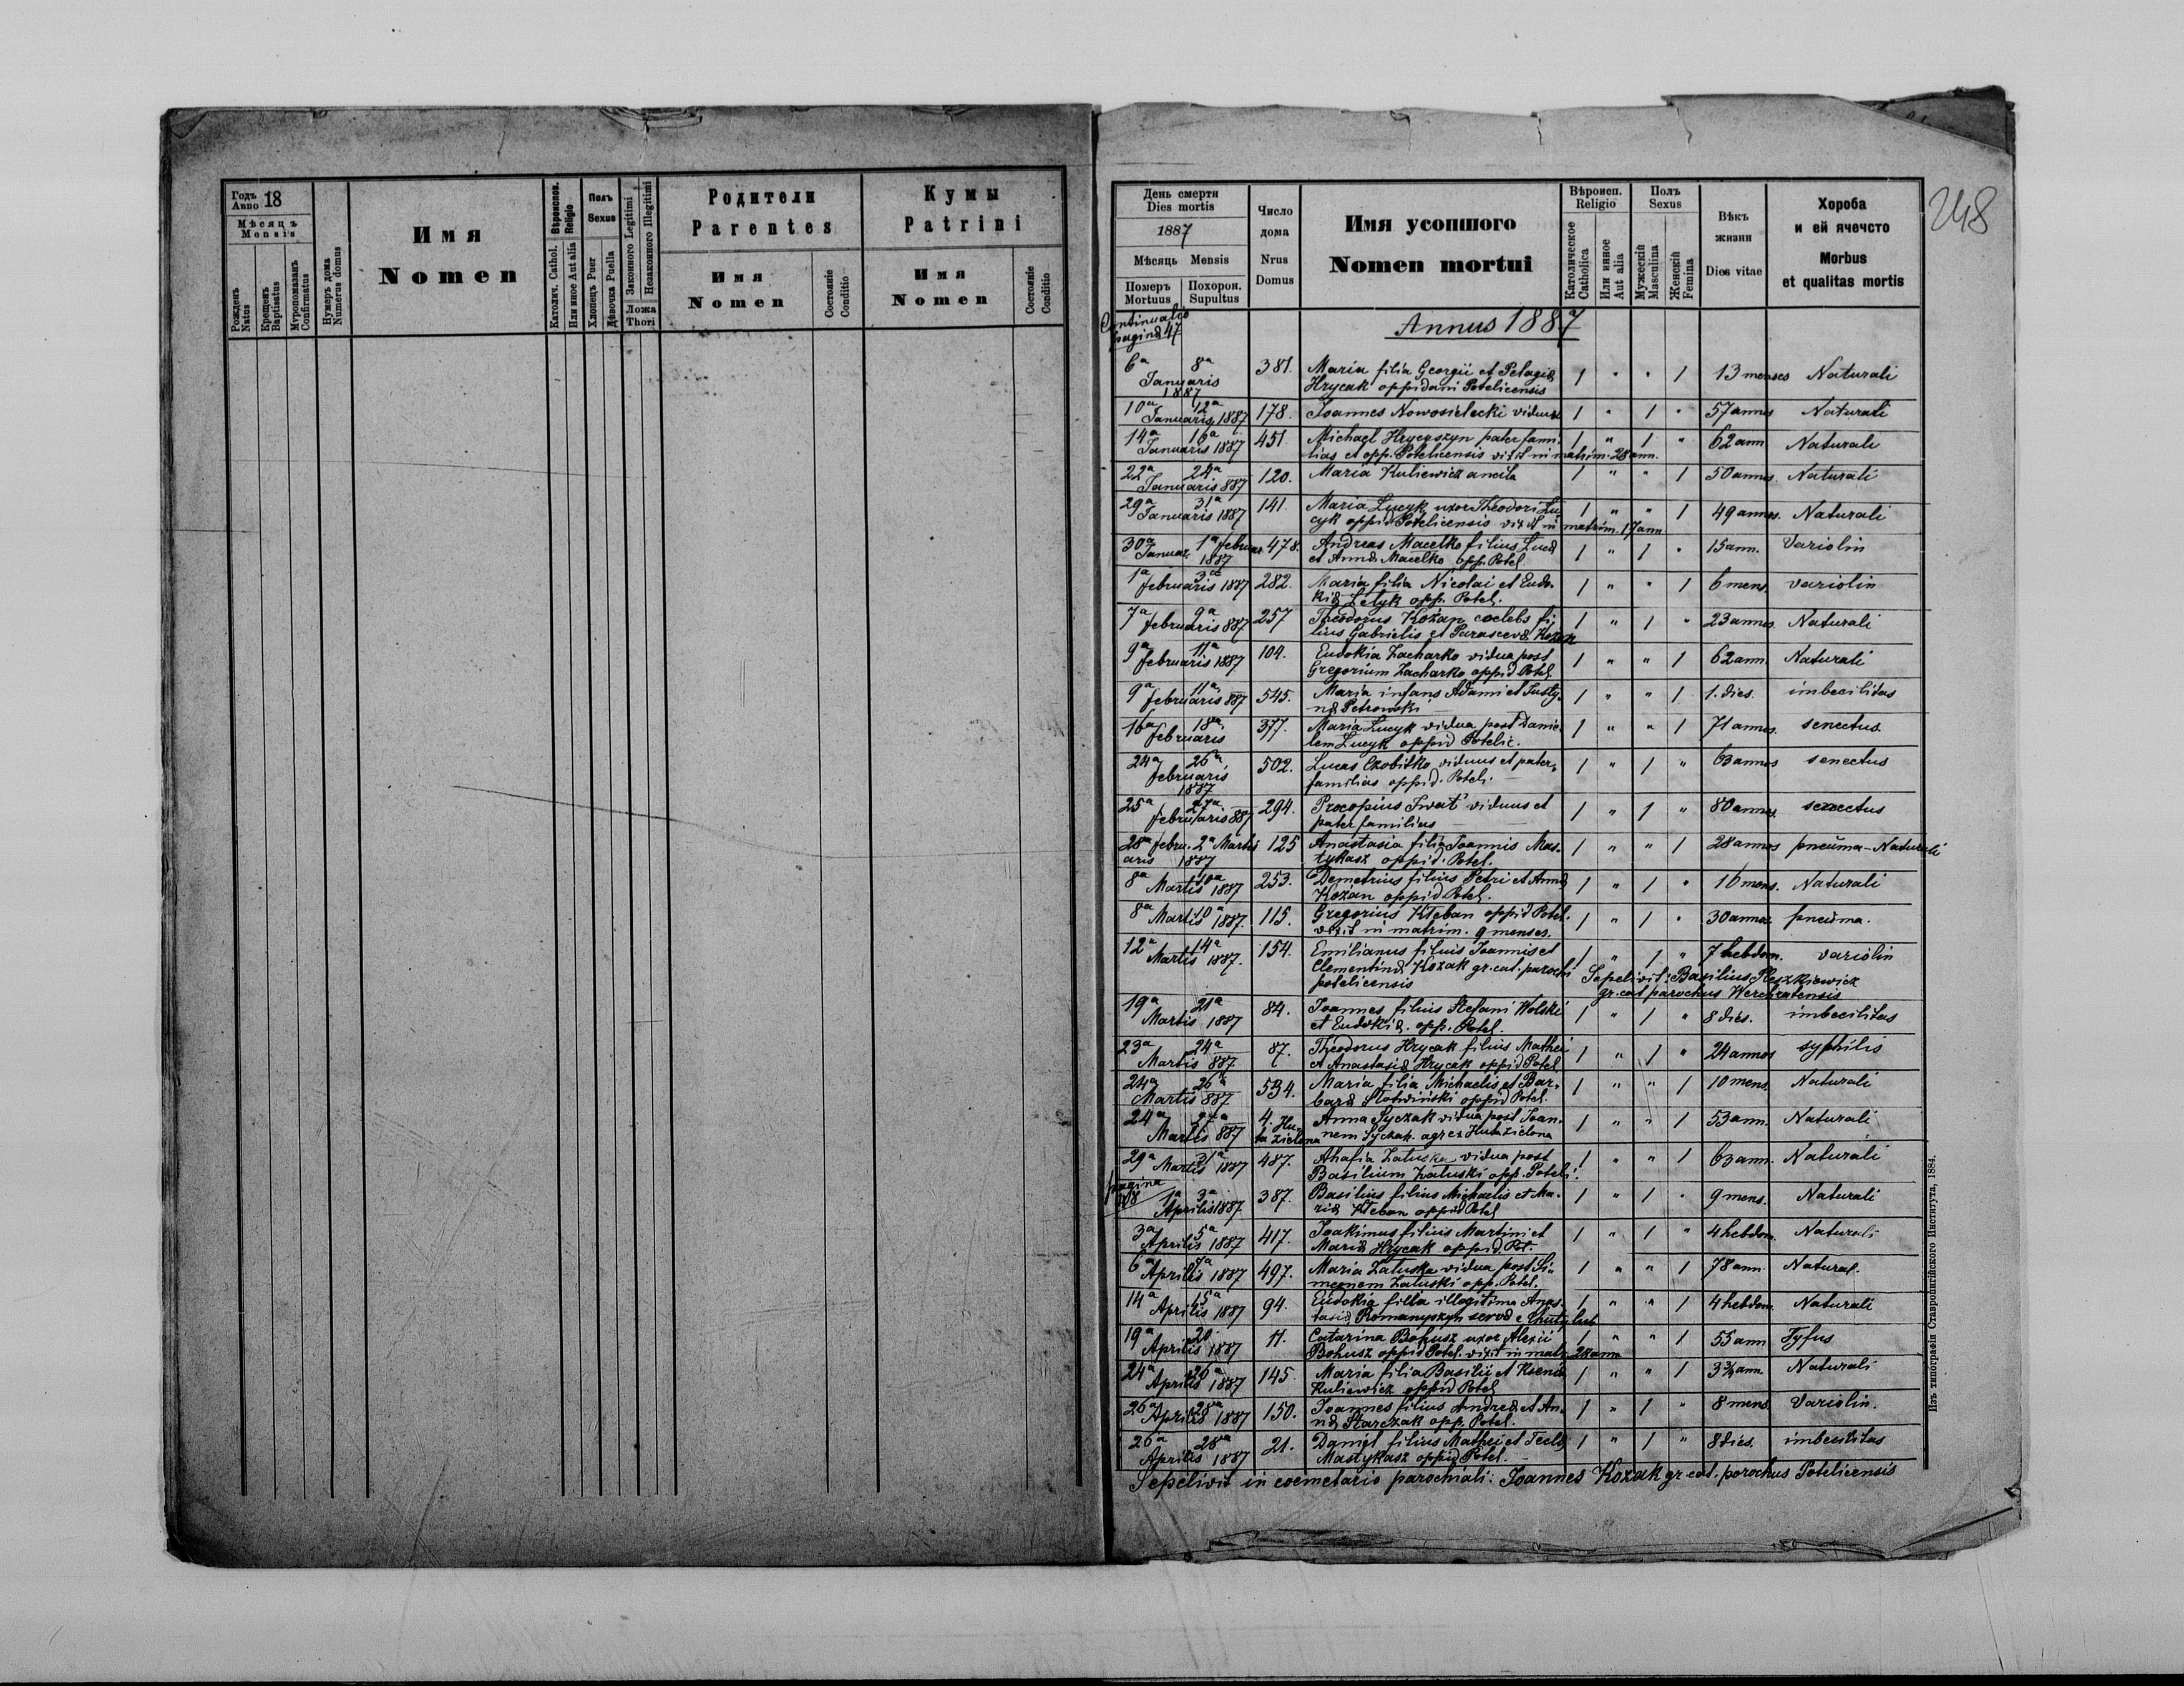 Годъ Anno 18
Мѣсяцъ
Mensis
Рожденъ Natus
Крещенъ Baptisatus
Мѵропомазанъ Confirmatus
Нумеръ дома Numerus domus
Имя
Nomen
Вѣроиспов. Religio
Католич. Cathol.
Или иное Aut alia
Полъ
Sexus
Хлопецъ Puer
Дѣвочка Puella
Законного Legitimi
Незаконного Illegitimi
Ложа
Thori
Родители
Parentes
Имя
Nomen
Состояніе
Conditio
Кумы
Patrini
Имя
Nomen
Состояніе
Conditio
248
День смерти
Dies mortis
1887
Мѣсяць Mensis
Померъ Mortuus
Похорон. Supultus
Число дома
Nrus Domus
Имя усопшого
Nomen mortui
Вѣроисп. Religio
Католическое Catholica
Или инное Aut alia
Полъ Sexus
Мужескій Masculina
Женскій Femina
Вѣкъ жизни
Dies vitae
Хороба
и ей ячечсто
Morbus
et qualitas mortis
Continuatio
pagina 47
Annus 1887
6a 8a Januaris 1887 381. Maria filia Georgii et Pelagiæ 1 " " 1 13 menses Naturali
Hrycak oppidani Potelicensis
10a 12a Januaris 1887 178. Joannes Nowosielecki viduus 1 " 1 " 57 annos Naturali
14a 16a Januaris 1887 451. Michael Hrycyszyn pater fami- 1 " 1 " 62 ann. Naturali
lias et opp. Potelicensis vixit in matrim. 28 ann.
22a 24a Januaris 887 120. Maria Kuliewicz ancila 1 " " 1 50 annos. Naturali
29a 31a Januaris 1887 141. Maria Lucyk uxor Theodori Lu- 1 " " 1 49 annos. Naturali
cyk oppid Potelicensis vixit in matrim. 17 ann
30a Januar. 1a februar 1887 478. Andreas Macelko filius Lucæ 1 " 1 " 15 ann. Variolin
et Annæ Macelko opp. Potel.
1a 3a februaris 1887 282. Maria filia Nicolai et Eudo- 1 " " 1 6 mens. variolin
kiæ Letyk opp. Potel.
7a 9a februaris 887 257 Theodorus Kożan coelebs fi- 1 " 1 " 23 annos. Naturali
lius Gabrielis et Parascevæ Kożan
9a 11a februaris 1887 104. Eudokia Zacharko vidua post 1 " " 1 62 ann. Naturali
Gregorium Zacharko oppid Potel.
9a 11a februaris 887 545. Maria infans Adami et Justy- 1 " " 1 1. dies. imbecilitas
næ Petrowski
16a 18a februaris 377. Maria Lucyk vidua post Danie- 1 " " 1 71 annos. senectus.
lem Lucyk oppid Potelic.
24a 26a februaris 1887 502. Lucas Czobitko viduus et pater- 1 " 1 " 63 annos senectus
familias oppid. Potel.
25a 27a februaris 887 294. Procopius Iwat' viduus et 1 " 1 " 80 annos. senectus
pater familias
28a febru- 2a Martis 125 Anastasia filia Joannis Mas- 1 " " 1 28 annos pneuma-Naturali
aris 1887 tykasz oppid. Potel.
8a 10a Martis 1887 253. Demetrius filius Petri et Annæ 1 " 1 " 16 mens. Naturali
Kożan oppid Potel.
8a 10a Martis 1887. 115. Gregorius Kłeban oppid Potel. 1 " 1 " 30 annos pneuma.
vixit in matrim. 9 menses.
12a 14a Martis 1887. 154. Emilianus filius Joannis et 1 " 1 " 7 hebdom. variolin
Clementinæ Kozak gr. cat. parochi
potelicensis
Sepelivit: Basilius Pleszkiewicz
gr. cat parochus Werchratensis
19a 21a Martis 1887 84. Joannes filius Stefani Wolski 1 " 1 " 8 dies. imbecilitas
et Eudokiæ. opp. Potel.
23a 24a Martis 887 87. Theodorus Hrycak filius Mathei 1 " 1 " 24 annos syphilis
et Anastasiæ Hrycak oppid Potel
24a 26a Martis 887 534. Maria filia Michaelis et Bar- 1 " " 1 10 mens. Naturali
baræ Słotwiński oppid Potel.
24a 27a Martis 887 4. Hu- Anna Syczak vidua post Joan- 1 " " 1 53 ann. Naturali
ta zielona nem Syczak. agr ex Huta zielona
29a 31a Martis 1887 487. Ahafia Załuska vidua post 1 " " 1 63 ann. Naturali
Basilium Załuski opp. Poteli.
pagina
1a 3a Aprilis 1887 387. Basilius filius Michaelis et Ma- 1 " 1 " 9 mens. Naturali
riæ Kłeban oppid Potel
3a 5a Aprilis 1887 417. Joakimus filius Martini et 1 " 1 " 4 hebdom. Naturali
Mariæ Hrycak oppid. Pot.
6a Aprilis 1887 497. Maria Załuska vidua post Si- 1 " " 1 78 ann Natural.
meonem Załuski opp. Potel.
14a 15a Aprilis 1887 94. Eudokia filia illegitima Anas- 1 " " 1 4 hebdom. Naturali
tasiæ Romanyszyn servæ e
19a 20. Aprilis 1887 11. Catarina Bohusz uxor Alexii 1 " " 1 55 ann Tyfus
Bohusz oppid Potel. vixit in matr. 28 ann
24a 26a Aprilis 1887 145. Maria filia Basilii et Kseniæ 1 " " 1 3 3/4 ann. Naturali
Kuliewicz oppid Potel
26a 28a Aprilis 1887 150. Joannes filius Andreæ et An- 1 " 1 " 8 mens. Variolin.
næ Starczak opp. Potel.
26a 28a Aprilis 1887 21. Daniel filius Mathei et Teclæ 1 " 1 " 8 dies. imbecilitas
Mastykasz oppid Potel.
Sepelivit in coemetario parochiali: Joannes Kozak gr. cat. parochus Potelicensis
Изъ типографіи Ставропигійского Института, 1884.